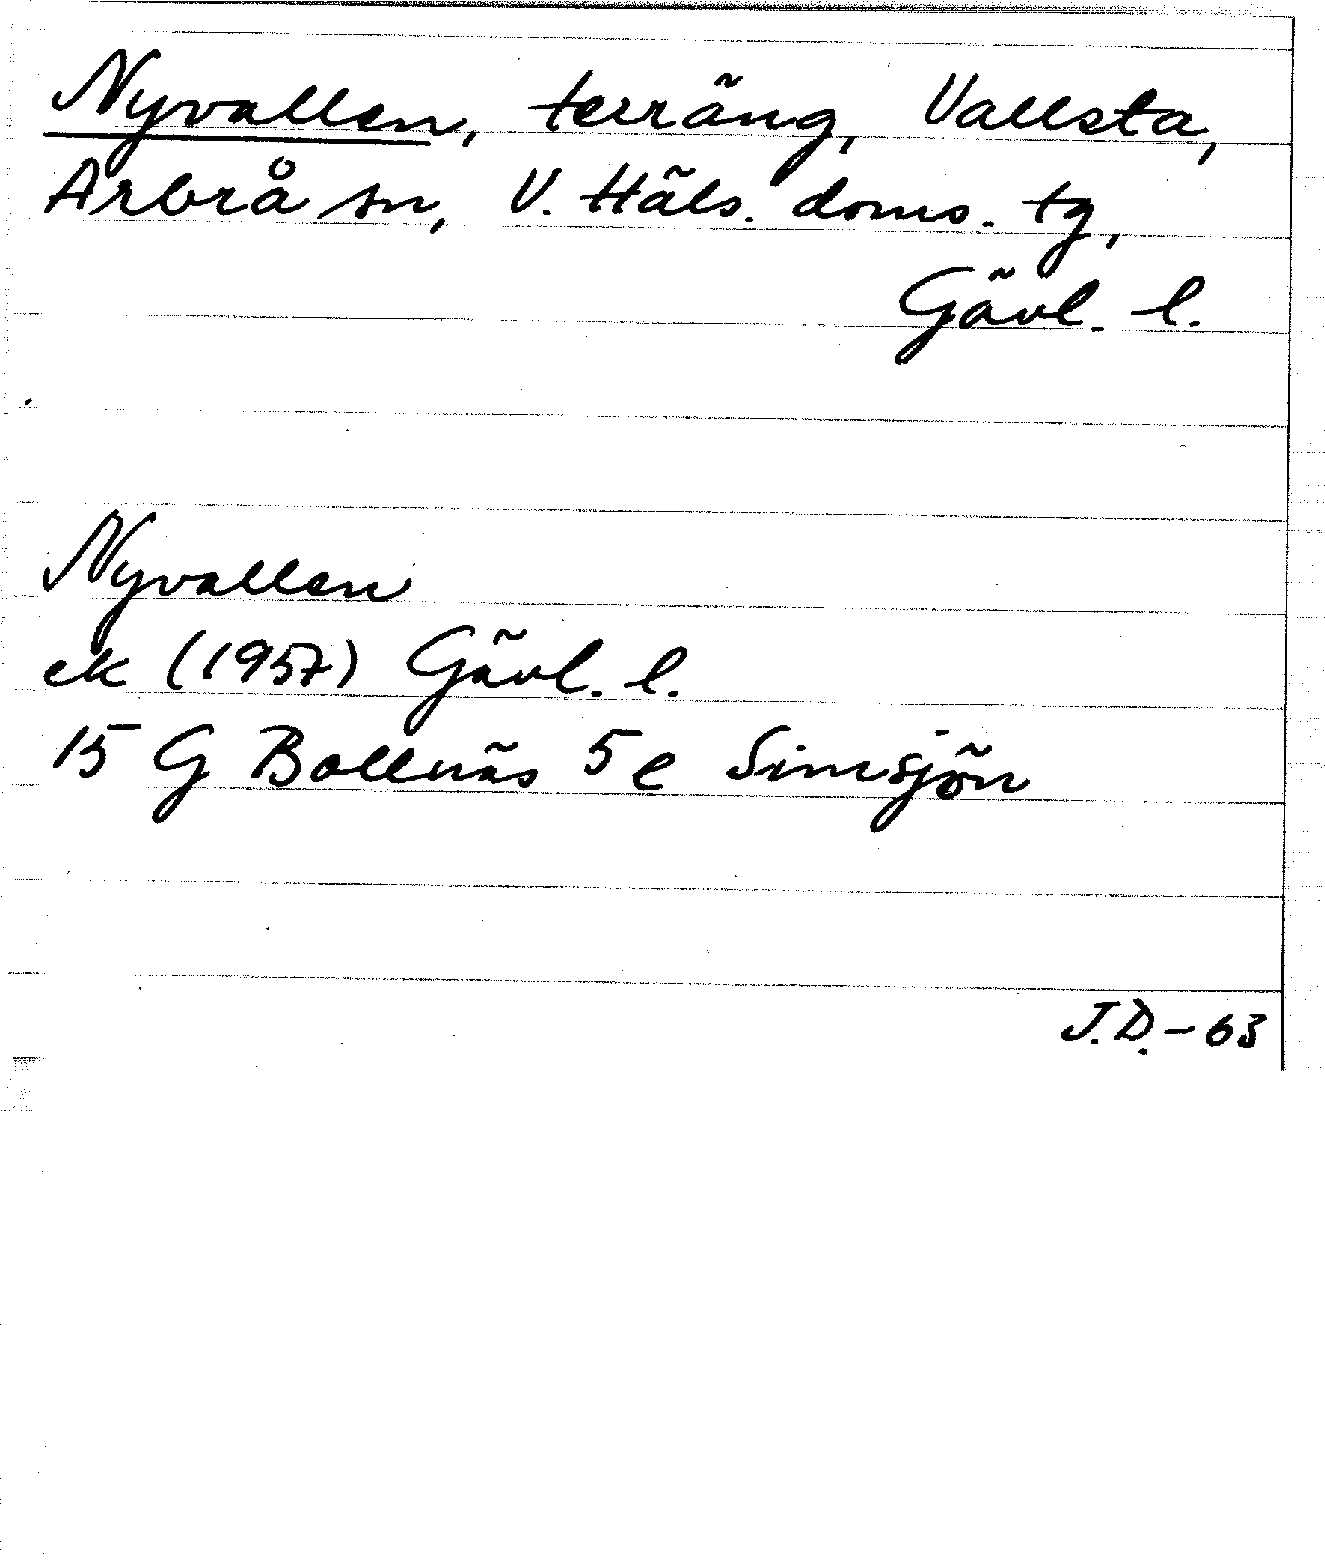 Nyvallen, terräng, Vallsta,
Arbrå sn, V. Häls. doms. tg,
Gävl. l.
Nyvallen
ek (1957) Gävl. l.
15 G Bollnäs 5 e Simsjön
J.D.-63